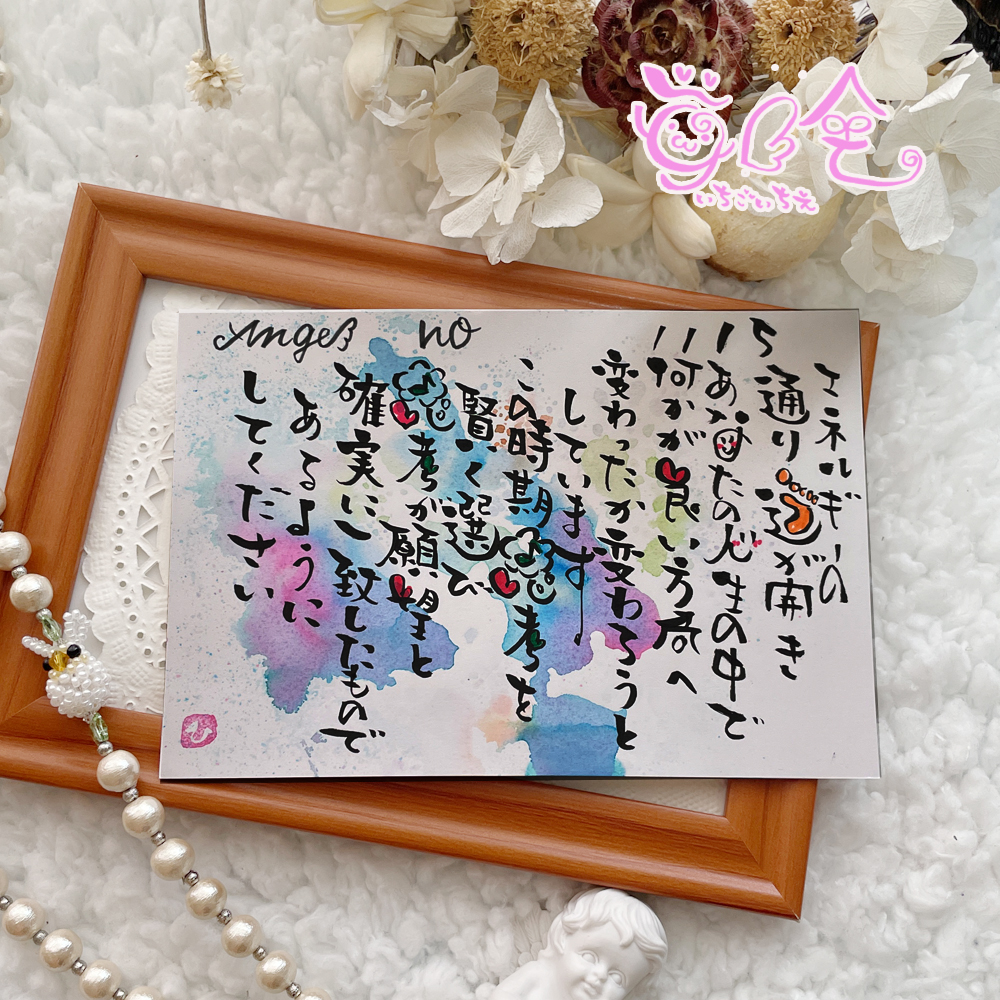 Angel no
1115
エネルギーの
通り道が開き
あなたの人生の中で
何かが良い方向へ
変わったか変わろうと
しています
この時期思考を
賢く選び
思考が願望と
確実に一致したもので
あるように
してください
いちごいちえ